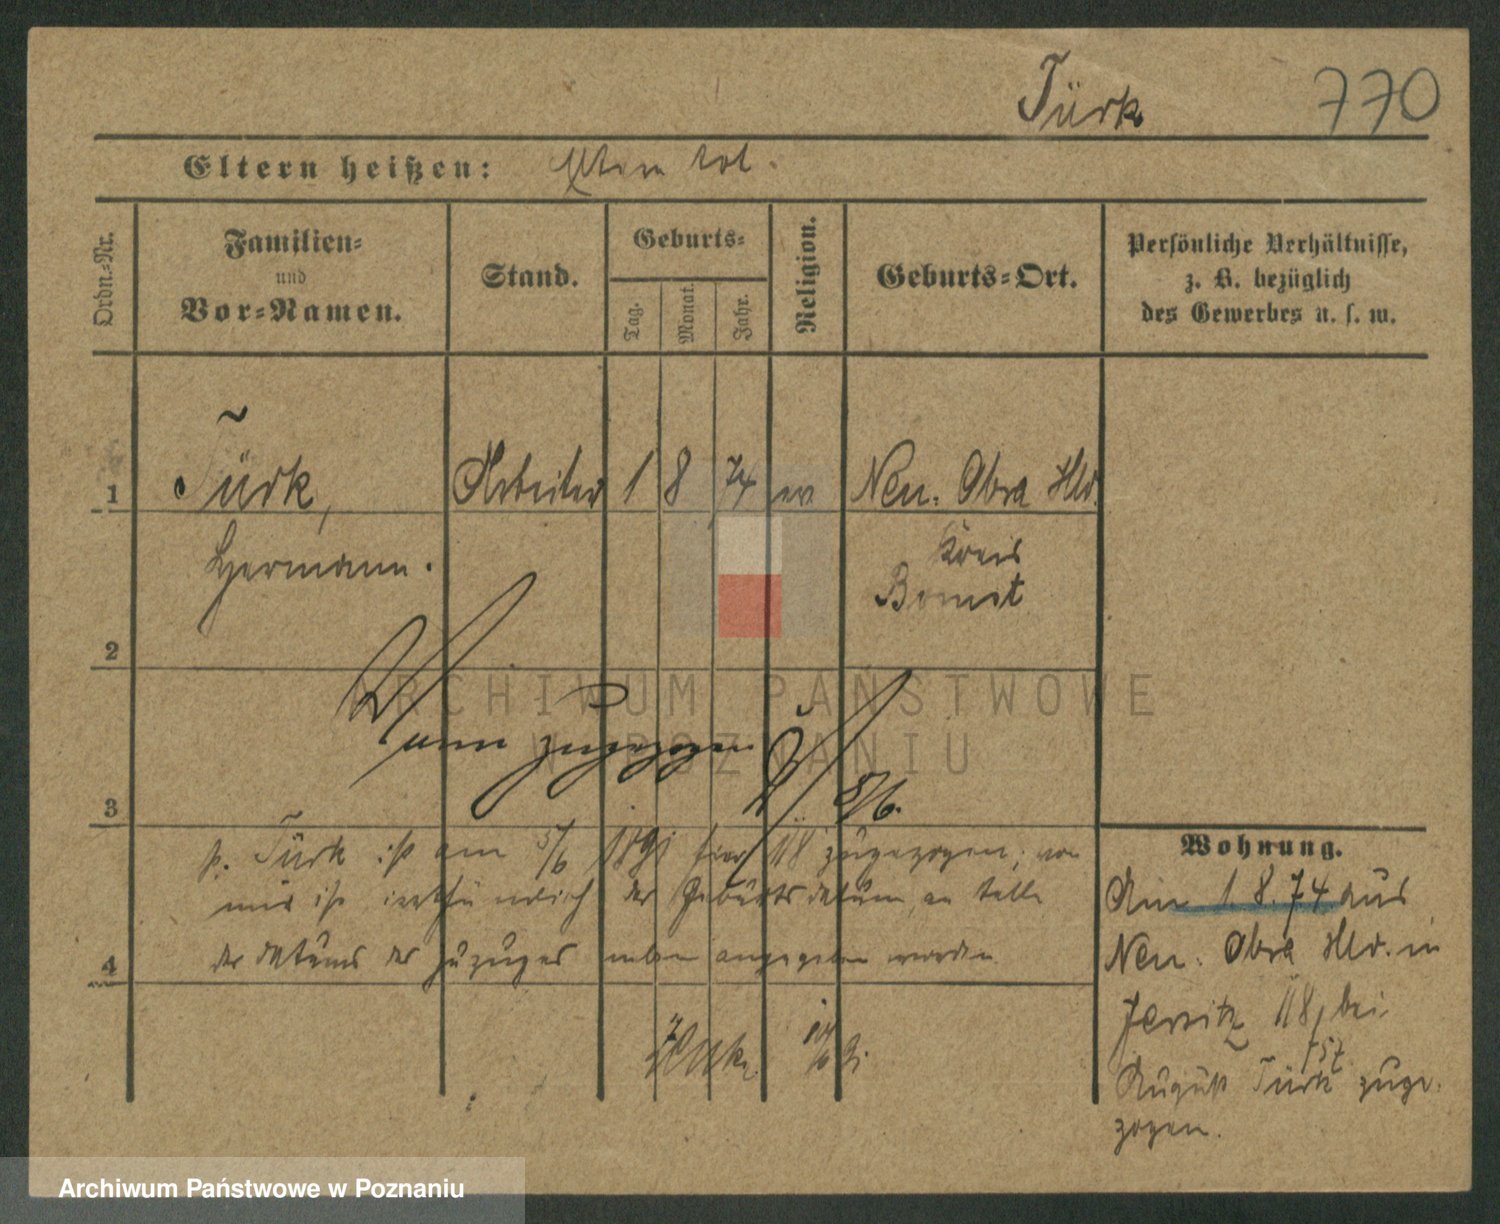 Türk 770
Eltern heißen: Eltern tot.
Ordn.-Nr.
Familien-
und
Vor-Namen.
Stand.
Geburts-
Tag.
Monat.
Jahr.
Religion.
Geburts-Ort.
Persönliche Verhältnisse,
z. B. bezüglich
des Gewerbes u. s. w.
1 Türk, Arbeiter 1 8 74 ev Neu. Obra Hld.
Hermann. Kreis
Bomst
2
ARCHIWUM PAŃSTWOWE
W POZNANIU
Wann zugezogen
8/6.
3
p. Türk ist am 5/6 1891 hier 118 zugezogen; von
mir ist irrthümlich der Geburtsdatum, an Stelle
des Datums des Zuzuges neben angegeben worden
4
Wohnung.
Am 1. 8. 74 aus
Neu. Obra Hld. in
Jersitz 118, bei
August Türk zuge-
zogen.
Archiwum Państwowe w Poznaniu